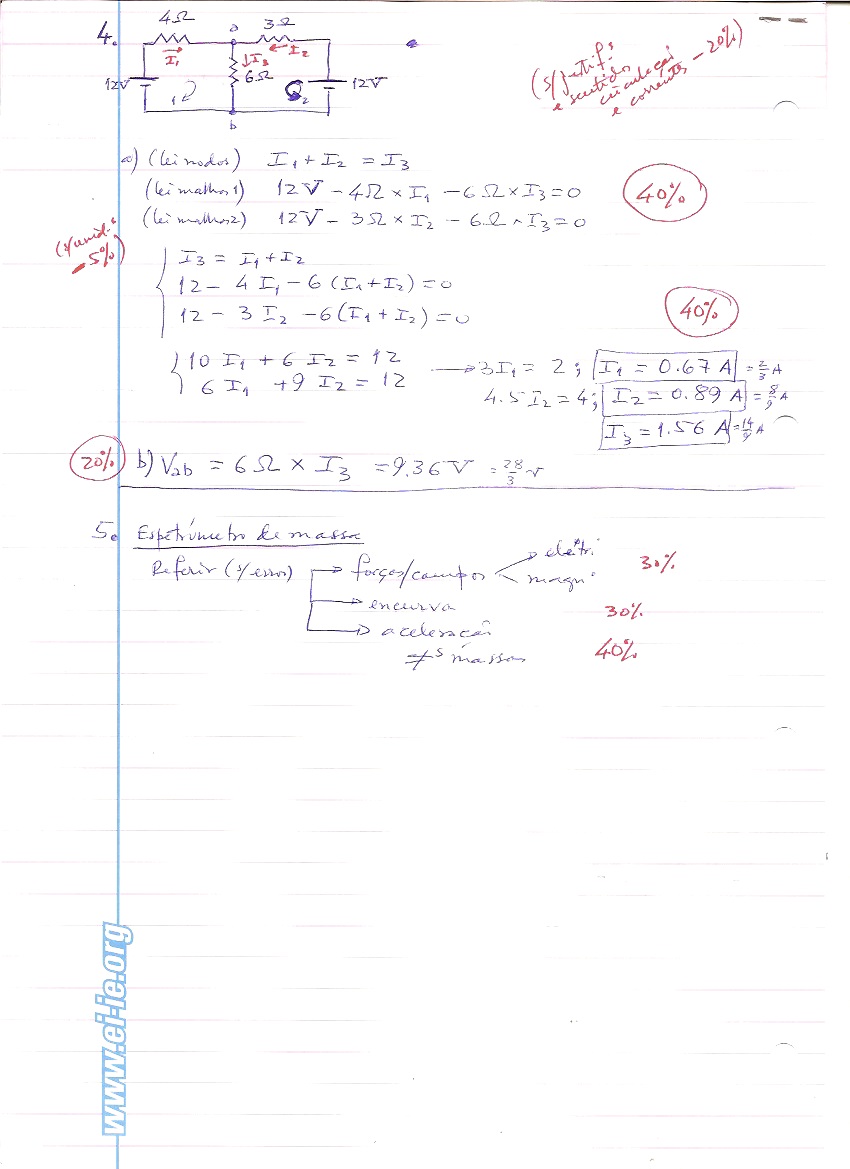 4.
4Ω a 3Ω
I1 I3 I2
12V 1 6Ω 2 12V
b
(s/ justif.
e sentidos
circulação
e correntes - 20%)
a) (lei nodos) I1 + I2 = I3
(lei malhas1) 12V - 4Ω × I1 - 6Ω × I3 = 0
40%
(lei malhas2) 12V - 3Ω × I2 - 6Ω × I3 = 0
(s/unid.
- 5%)
I3 = I1 + I2
12 - 4 I1 - 6 (I1 + I2) = 0
12 - 3 I2 - 6 (I1 + I2) = 0
40%
10 I1 + 6 I2 = 12 → 3I1 = 2 ; I1 = 0.67 A = 2/3 A
6 I1 + 9 I2 = 12 4.5 I2 = 4; I2 = 0.89 A = 8/9 A
I3 = 1.56 A = 14/9 A
20% b) Vab = 6Ω × I3 = 9.36 V = 28/3 V
5. Espetrómetro de massa
Referir (s/ erros) → forças/campos eletri
magn
30%
→ encurva 30%
→ aceleração
≠s massas 40%
www.ei-ie.org